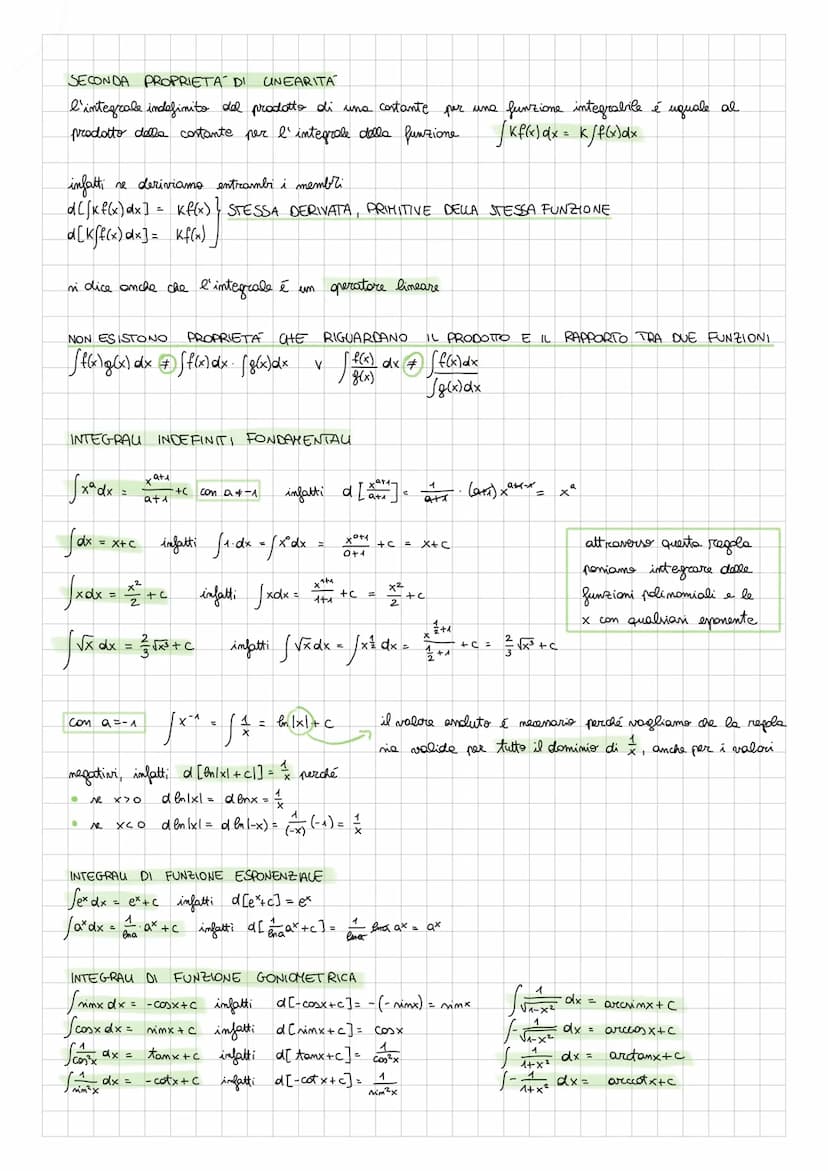 SECONDA PROPRIETÀ DI LINEARITÀ
l'integrale indefinito del prodotto di una costante per una funzione integrabile é uguale al
prodotto della costante per l'integrale della funzione ∫Kf(x)dx = K∫f(x)dx
infatti se deriviamo entrambi i membri
d[∫Kf(x)dx] = Kf(x) } STESSA DERIVATA, PRIMITIVE DELLA STESSA FUNZIONE
d[K∫f(x)dx] = Kf(x)
si dice anche che l'integrale é un operatore lineare
NON ESISTONO PROPRIETÀ CHE RIGUARDANO IL PRODOTTO E IL RAPPORTO TRA DUE FUNZIONI
∫f(x)g(x)dx ≠ ∫f(x)dx · ∫g(x)dx v ∫f(x)/g(x) dx ≠ ∫f(x)dx / ∫g(x)dx
INTEGRALI INDEFINITI FONDAMENTALI
∫xᵃdx = xᵃ⁺¹/(a+1) + c con a≠-1 infatti d[xᵃ⁺¹/(a+1)] = 1/(a+1) · (a+1)xᵃ⁺¹⁻¹ = xᵃ
∫dx = x+c infatti ∫1·dx = ∫x⁰dx = x⁰⁺¹/(0+1) + c = x+c
∫xdx = x²/2 + c infatti ∫xdx = x¹⁺¹/(1+1) + c = x²/2 + c
∫√x dx = 2/3 √x³ + c infatti ∫√x dx = ∫x^(1/2) dx = x^(1/2+1)/(1/2+1) + c = 2/3 √x³ + c
attraverso questa regola
possiamo integrare delle
funzioni polinomiali e le
x con qualsiasi esponente
con a=-1 ∫x⁻¹ = ∫1/x = ln|x| + c il valore assoluto é necessario perché vogliamo che la regola
sia valida per tutto il dominio di 1/x, anche per i valori
negativi, infatti d[ln|x|+c|] = 1/x perché
• se x>0 d ln|x| = d lnx = 1/x
• se x<0 d ln|x| = d ln(-x) = 1/(-x) (-1) = 1/x
INTEGRALI DI FUNZIONE ESPONENZIALE
∫eˣdx = eˣ+c infatti d[eˣ+c] = eˣ
∫aˣdx = 1/lna · aˣ + c infatti d[1/lna aˣ + c] = 1/lna lna aˣ = aˣ
INTEGRALI DI FUNZIONE GONIOMETRICA
∫sinx dx = -cosx+c infatti d[-cosx+c] = -(-sinx) = sinx
∫cosx dx = sinx+c infatti d[sinx+c] = cosx
∫1/cos²x dx = tanx+c infatti d[tanx+c] = 1/cos²x
∫1/sin²x dx = -cotx+c infatti d[-cotx+c] = 1/sin²x
∫1/√(1-x²) dx = arcsinx+c
∫-1/√(1-x²) dx = arccosx+c
∫1/(1+x²) dx = arctanx+c
∫-1/(1+x²) dx = arccotx+c